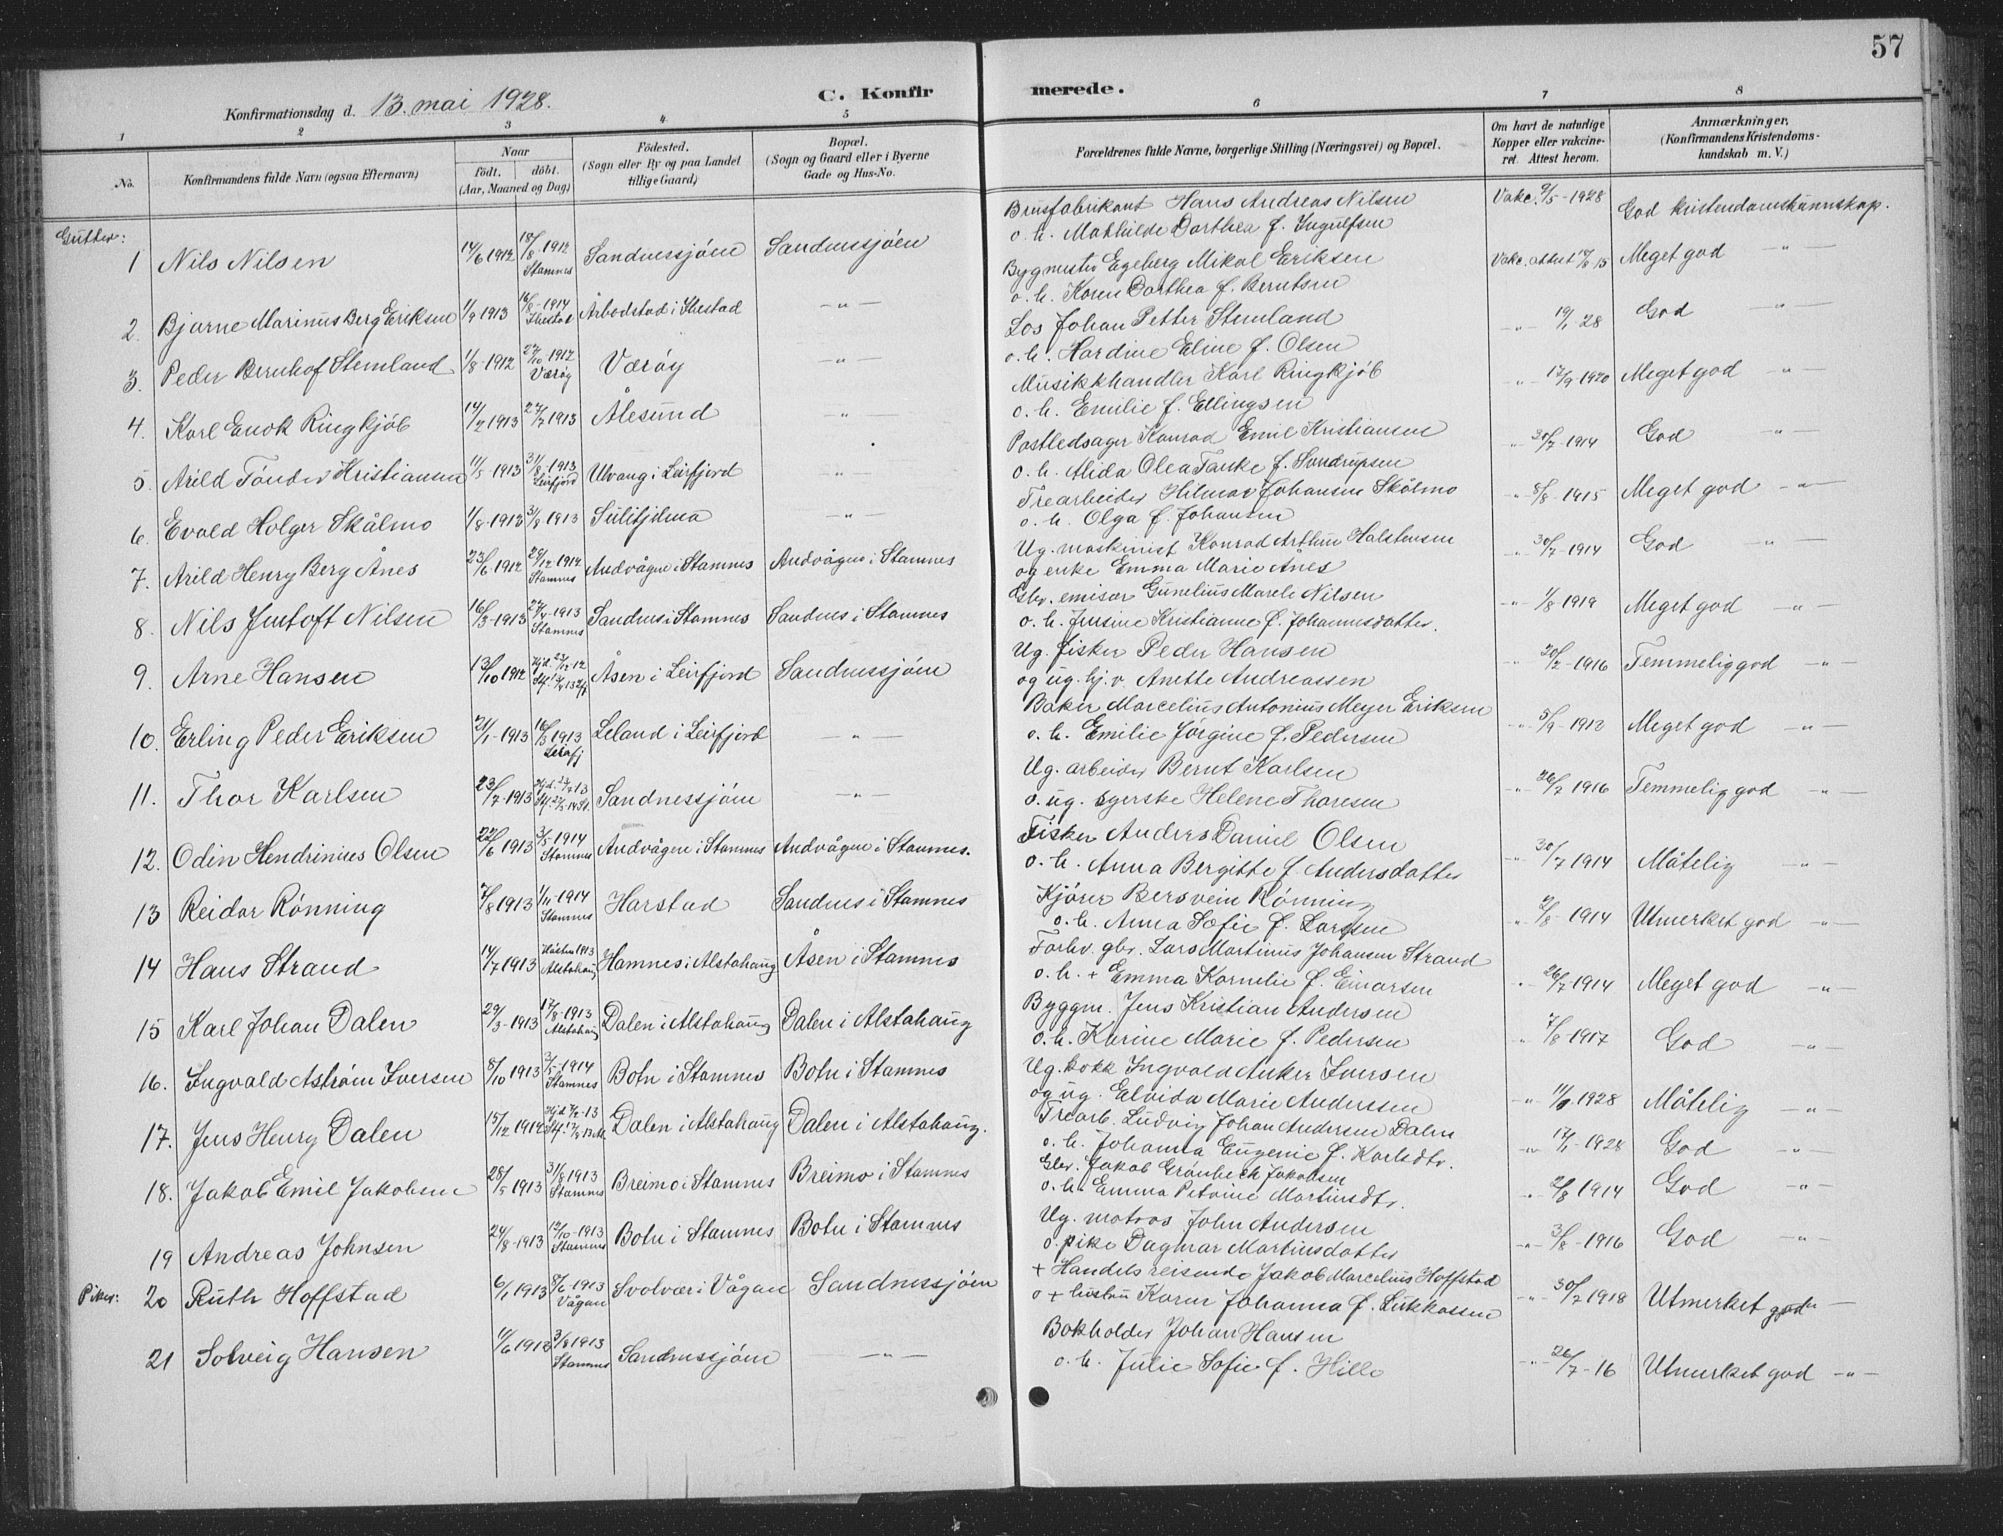 57
Konfirmationsdag d. 13. mai 1928.
C. Konfirmerede.
1 2 3 4 5 6 7 8
No.
Konfirmandens fulde Navn (ogsaa Efternavn)
Naar
født. døbt.
(Aar, Maaned og Dag)
Fødested.
(Sogn eller By og paa Landet
tillige Gaard)
Bopæl.
(Sogn og Gaard eller i Byerne
Gade og Hus-No.
Forældrenes fulde Navne, borgerlige Stilling (Næringsvei) og Bopæl.
Om havt de naturlige
Kopper eller vakcine-
ret. Attest herom.
Anmærkninger,
(Konfirmandens Kristendoms-
kundskab m. V.)
Gutter:
1 Nils Nilsen 14/6 1912 18/8-1912 Stamnes Sandnessjöen Sandnessjöen
Brusfabrikant Hans Andreas Nilsen
o. h. Mathilde Dorthea f. Ingulfsen
Vakc. 9/5-1928 God kristendomskunnskap.
2. Bjarne Marinus Berg Eriksen 1/9 1913 16/8-1914 Årbodstad i —"—
Bygmester Egeberg Mikal Eriksen
o. h. Karen Dorthea f. Berntsen
Vakc. attest Meget god —"—
3. Peder Bernhof Stemland 1/8-1912 27/10-1912 Væröy Væröy —"—
Los Johan Petter Stemland
o. h. Hardine Eline f. Olsen
—"— 19/1-28 God —"—
4. Karl Enok Ringkjöb 14/2 1913 27/7 1913 Ålesund —"—
Musikkhandler Karl Ringkjöb
o. h. Emilie f. Ellingsen
—"— 17/9 1920 Meget god —"—
5. Arild Tönder Kristiansen 11/5-1913 31/8-1913 Leirfjord Ulvang i Leirfjord —"—
Postledsager Konrad Emil Kristiansen
o. h. Alida Olea Tanke f.
—"— 30/7-1914 God —"—
6. Evald Holger Skålmo 1/8-1913 3/8 1913 Sulitjelma —"—
Trearbeider Hilmar Johansen Skålmo
o. h. Olga f. Johansen
—"— 8/8-1915 Meget god —"—
7. Arild Henry Berg Ånes 23/6-1912 29/12-1914 Stamnes Andvågen i Stamnes Andvågen i Stamnes
Ug. maskinist Konrad Arthur Halstensen
og enke Emma Marie Ånes
—"— 30/7-1914 God —"—
8. Nils Jentoft Nilsen 16/3-1913 27/4-1913 Stamnes Sandnes i Stamnes Sandnes i Stamnes
Gbr. emisær Gunelius Mareli Nilsen
o. h. Jensine Kristianne f. Johannesdatter.
—"— 1/8-1919 Meget god —"—
9. Arne Hansen 13/10 1912 Åsen i Leirfjord Sandnessjöen
Ug. fisker Peder Hansen
og ug. hj. v. Anette Andreassen
—"— 20/2-1916 Temmelig god —"—
10. Erling Peder Eriksen 21/1-1913 16/3 1913 Leirfj Leland i Leirfjord —"—
Baker Marcelius Antonius Meyer Eriksen
o. h. Emilie Jörgine f. Pedersen
—"— 5/9-1912 Meget god —"—
11. Thor Karlsen 23/7-1913 Sandnessjöen —"—
Ug. arbeider Bernt Karlsen
o. ug. syerske Helene Thoresen
—"— 26/7 1916 Temmelig god —"—
12. Odin Hendrinius Olsen 22/6 1913 3/5-1914 Stamnes Andvågen i Stamnes Andvågen i Stamnes.
Fisker Anders Daniel Olsen
o. h. Anna Bergitte f. Andersdatter
—"— 30/7 1914 Måtelig —"—
13 Reidar Rönning 7/8 1913 1/11-1914 Stamnes Harstad Sandnes i Stamnes
Kjörer Bersvein Rönning
o. h. Anna Sofie f. Larssen
—"— 2/8-1914 Utmerket god —"—
14 Hans Strand 14/7 1913 Hösten 1913 Alstahaug Hamnes i Alstahaug Åsen i Stamnes
Forhv. gbr. Lars Martinus Johansen Strand
o. h. + Emma Kornelie f. Einarsen
—"— 26/7-1914 Meget god —"—
15 Karl Johan Dalen 29/3-1913 17/8-1913 Alstahaug Dalen i Alstahaug Dalen i Alstahaug
Byggm. Jens Kristian Andersen
o. h. Karine Marie f. Pedersen
—"— 7/8 1917 God —"—
16. Ingvald Aström Iversen 8/10 1913 3/5-1914 Stamnes Botn i Stamnes Botn i Stamnes
Ug. kokk Ingvald Anker Iversen
og ug. Elvida Marie Anderssen
—"— 11/1 1928 Måtelig —"—
17. Jens Henry Dalen 15/12 1912 Dalen i Alstahaug Dalen i Alstahaug.
Trearb. Ludvig Johan Andersen Dalen
o. h. Johanna Eugenie f. Karlsdtr.
—"— 17/1-1928 God —"—
18. Jakob Emil Jakobsen 28/5 1913 31/8 1913 Stamnes Breimo i Stamnes Breimo i Stamnes
Gbr. Jakob Grönbech Jakobsen
o. h. Emma Petrine Martinsdtr.
—"— 2/8 1914 God —"—
19 Andreas Johnsen 24/8-1913 12/10-1913 Stamnes Botn i Stamnes Botn i Stamnes
Ug. matros John Andersen
o. pike Dagmar Martinsdatter
—"— 3/8-1916 God —"—
Piker:
20 Ruth Hoffstad 6/1 1913 8/6-1913 Vågan Svolvær i Vågan Sandnessjöen
+ Handelsreisende Jakob Marcelius Hoffstad
o + hustru Karen Johanna f. Lukkassen
—"— 30/7 1918 Utmerket god —
21 Solveig Hansen 11/6 1913 3/8 1913 Stamnes Sandnessjöen —"—
Bokholder Johan Hansen
o. h. Julie Sofie f. Hille
—"— 26/7-16 Utmerket god —"—